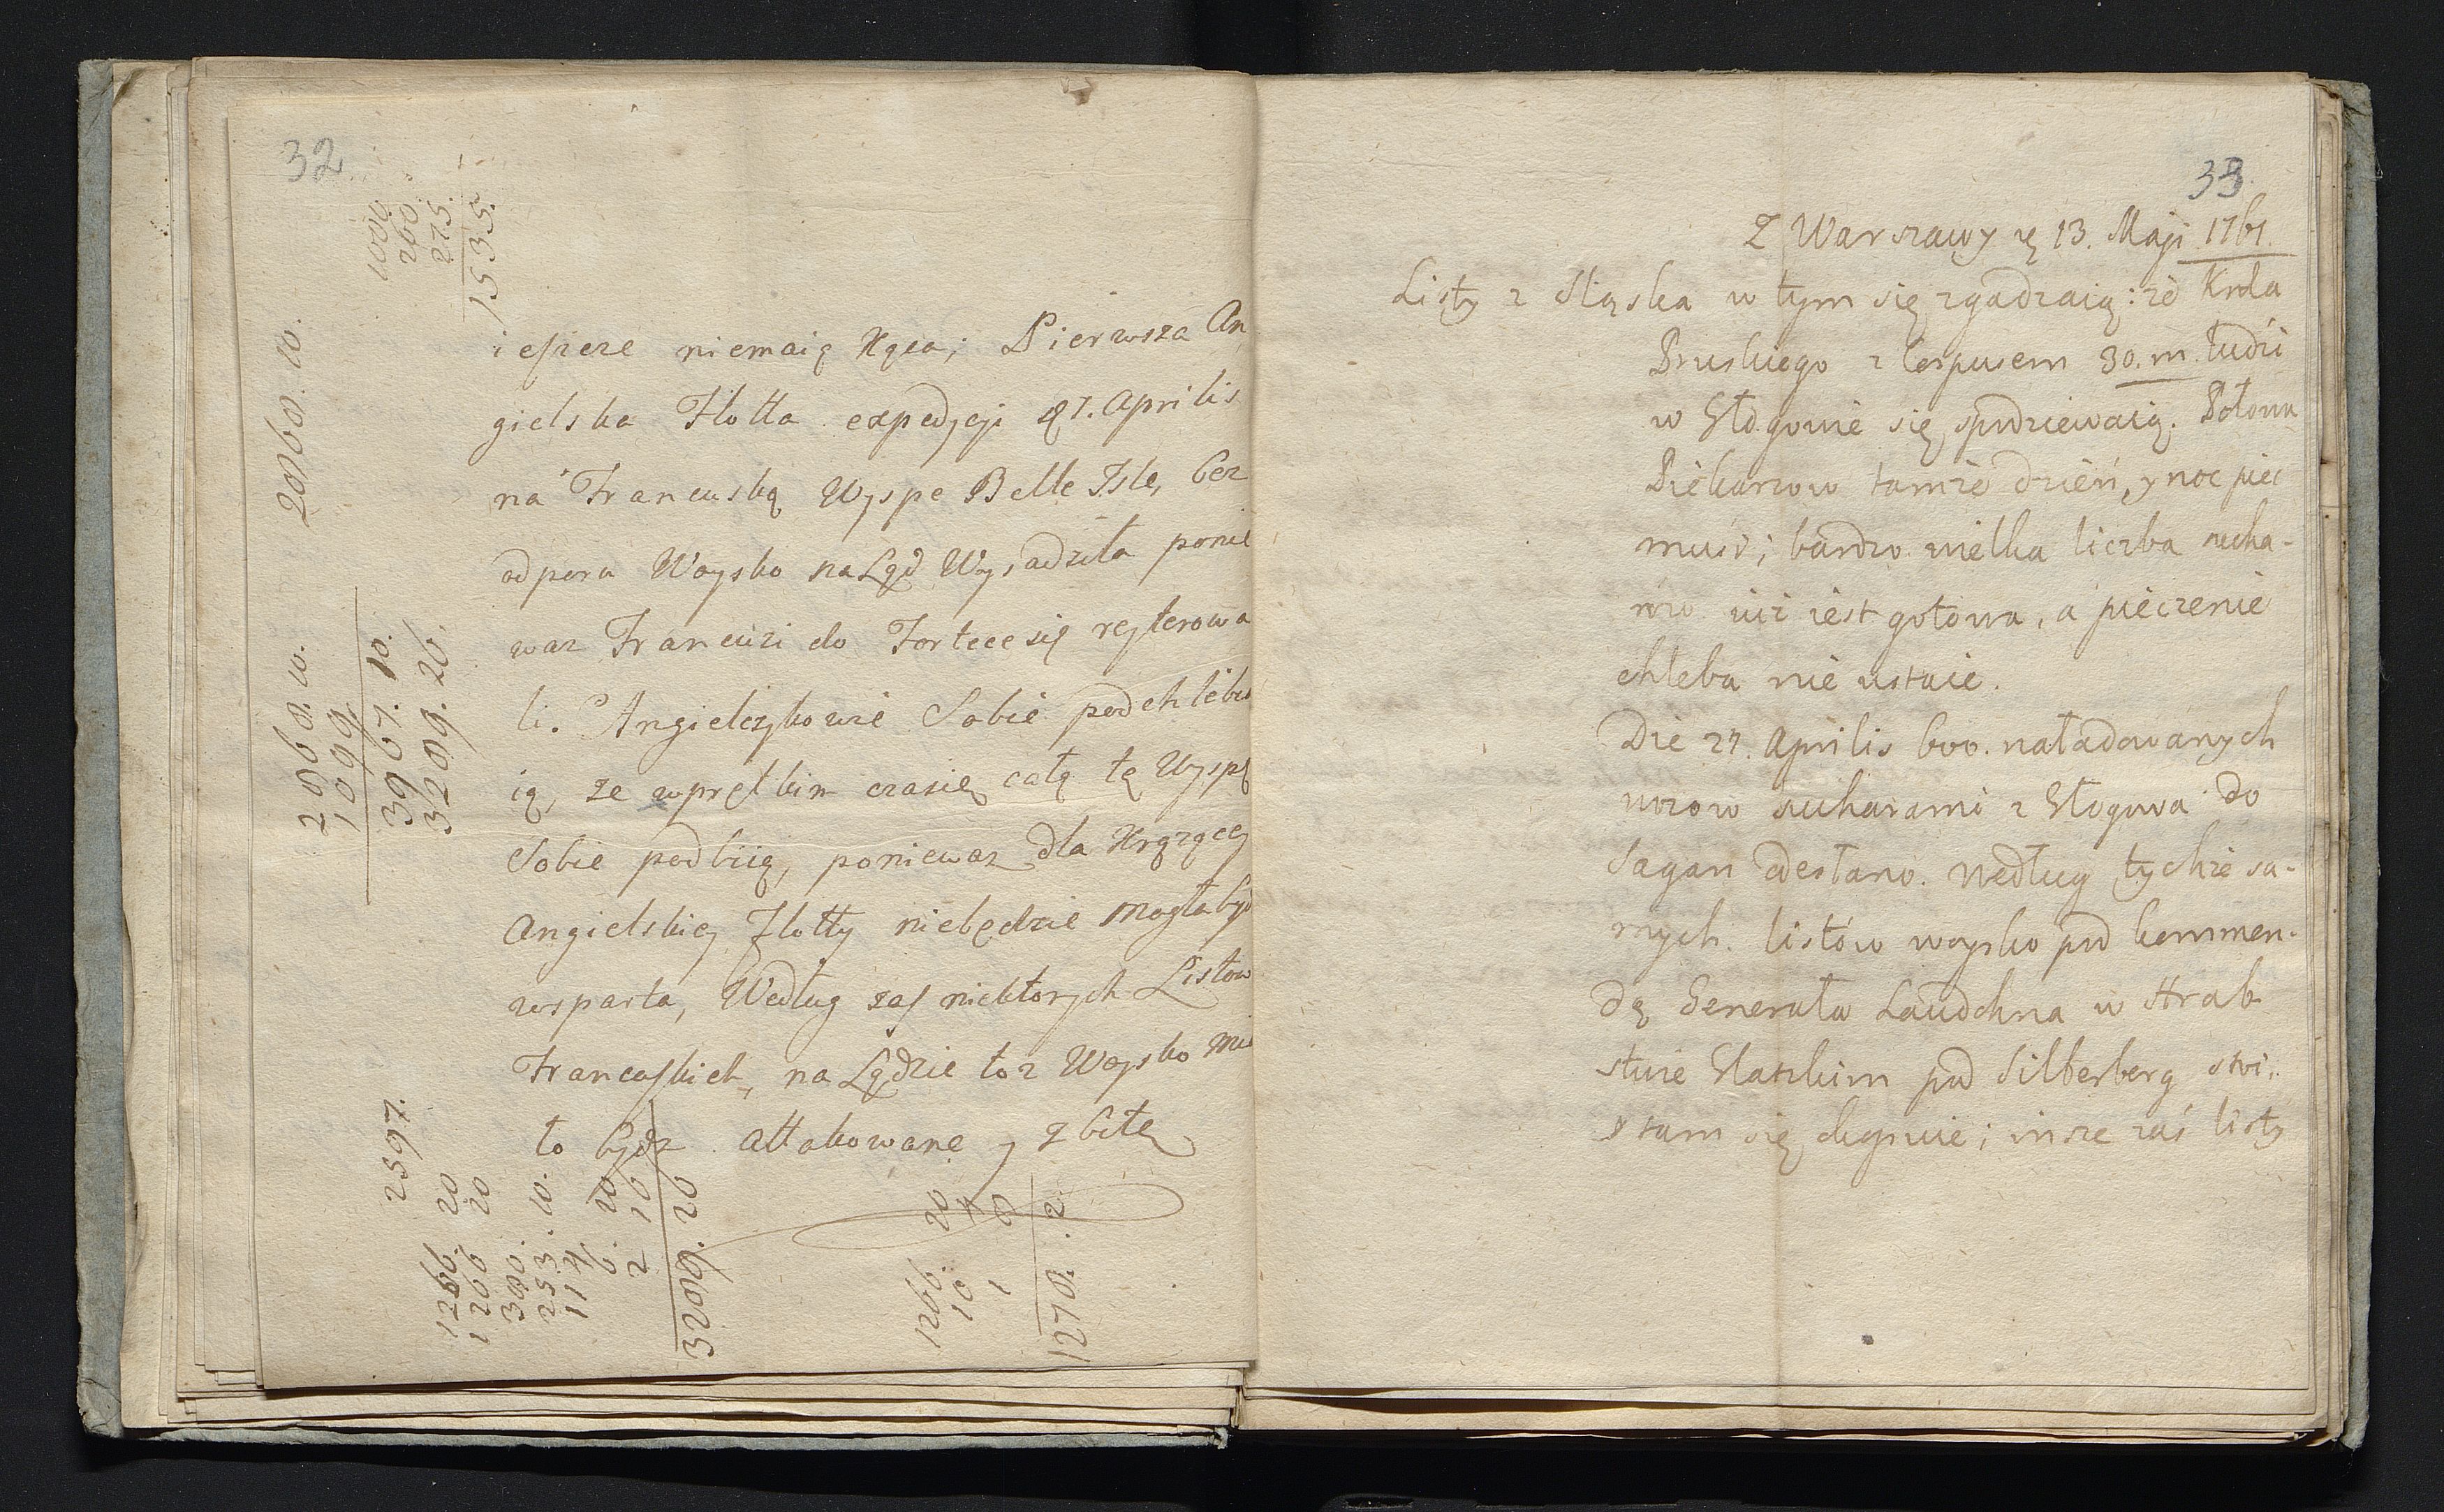 32
1000.
260.
275.
1535.
2868. 10.
2868. 10.
1099
3967. 10.
3209. 26.
ieszcze niemaią Xęcia; Pierwsza An
gielska Flotta expedycji 87. Aprilis
na Francuską Wyspe Belle Isle, bez
odporu Woysko na Ląd Wysadziła ponie
waz Francuzi do Fortece się rejterowa
li. Angielczykowie Sobie podchlebu
ią, ze wprętkim czasie całą tę Wyspę
Sobie podbiią, poniewaz dla Krązącey
Angielskiey Flotty niebędzie mogła byd
wsparta, Według zas niektorych Listow
Francuskich, na Lądzie toz Woysko mia
to bydz attakowane y zbite
2597.
1266. 20
1266 20
300.
253. 10.
114
6. 20
2 10
3209. 20
1266. 20
10
1 8
1278. 2
33
Z Warszawy d 13. Maji 1761.
Listy z Sląska w tym się zgadzaią: że Krola
Pruskiego z Corpusem 30. m ludzi
w Głogowie się spodziewaią. Połowa
Piekarzow tamże dzień, y noc piec
musi; bardzo wielka liczba sucha-
row iuż iest gotowa, a pieczenie
chleba nie ustaie.
Die 27. Aprilis 600. naładowanych
wozow sucharami z Głogowa do
Sagan odesłano. Według tychże sa-
mych listów woysko pod kommen-
dą Generała Laudohna w Hrab
stwie Glatzkim pod Silberberg stoi,
y tam się okopuie; insze zaś listy